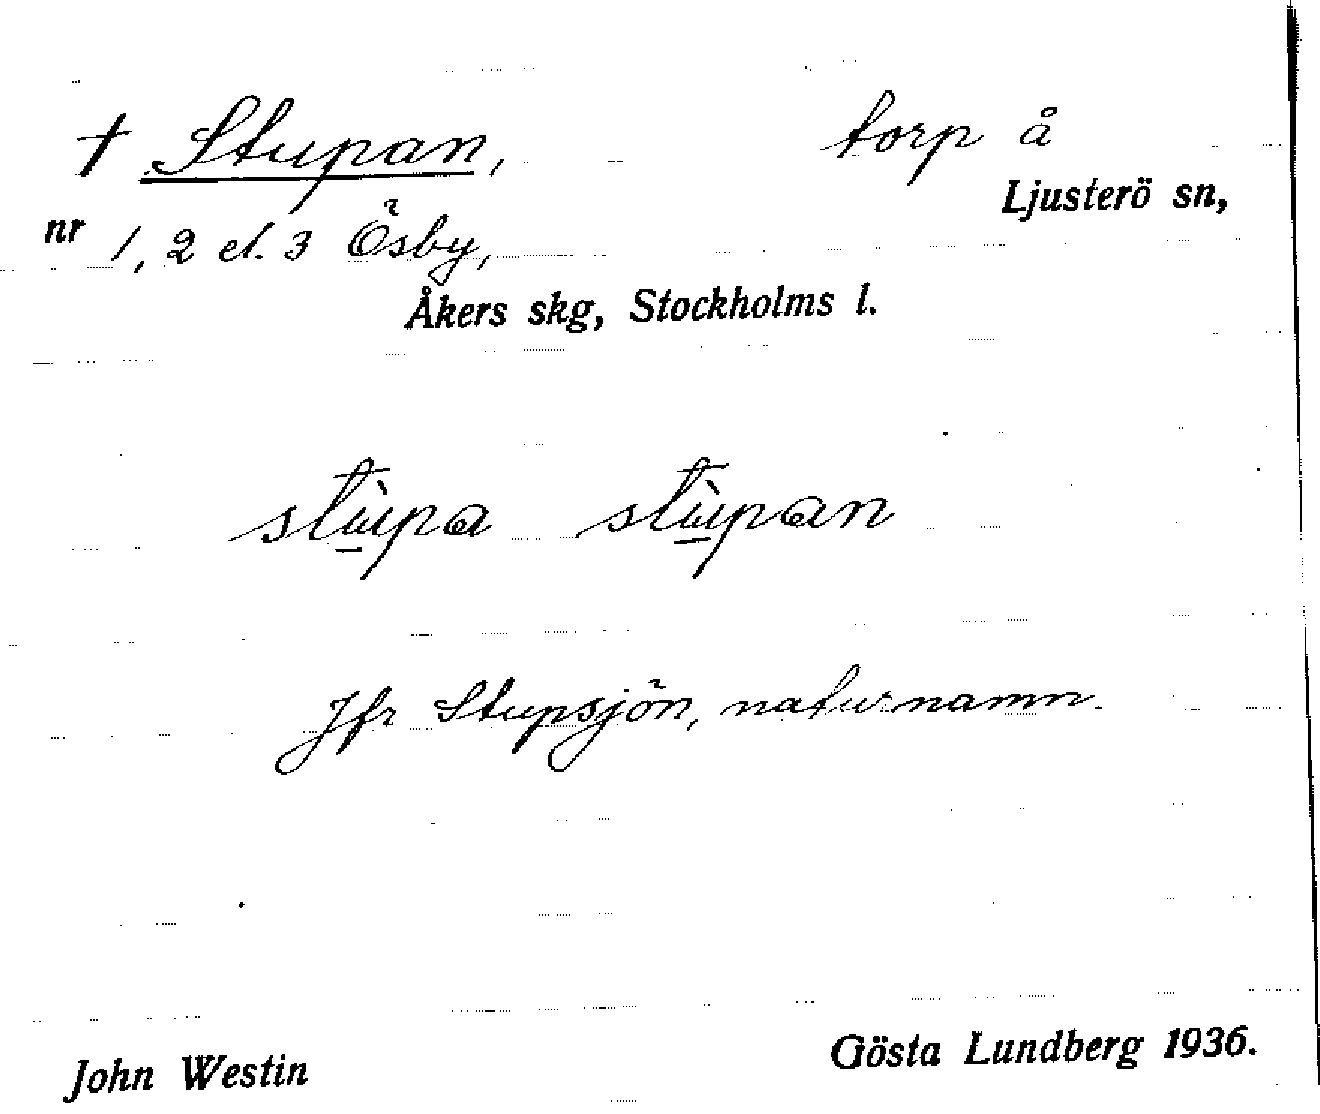 † Stupan, torp å
Ljusterö sn,
nr 1, 2 el. 3 Ösby,
Åkers skg, Stockholms l.
stù̱pa stù̱pan
Jfr Stupsjön, naturnamn.
John Westin Gösta Lundberg 1936.